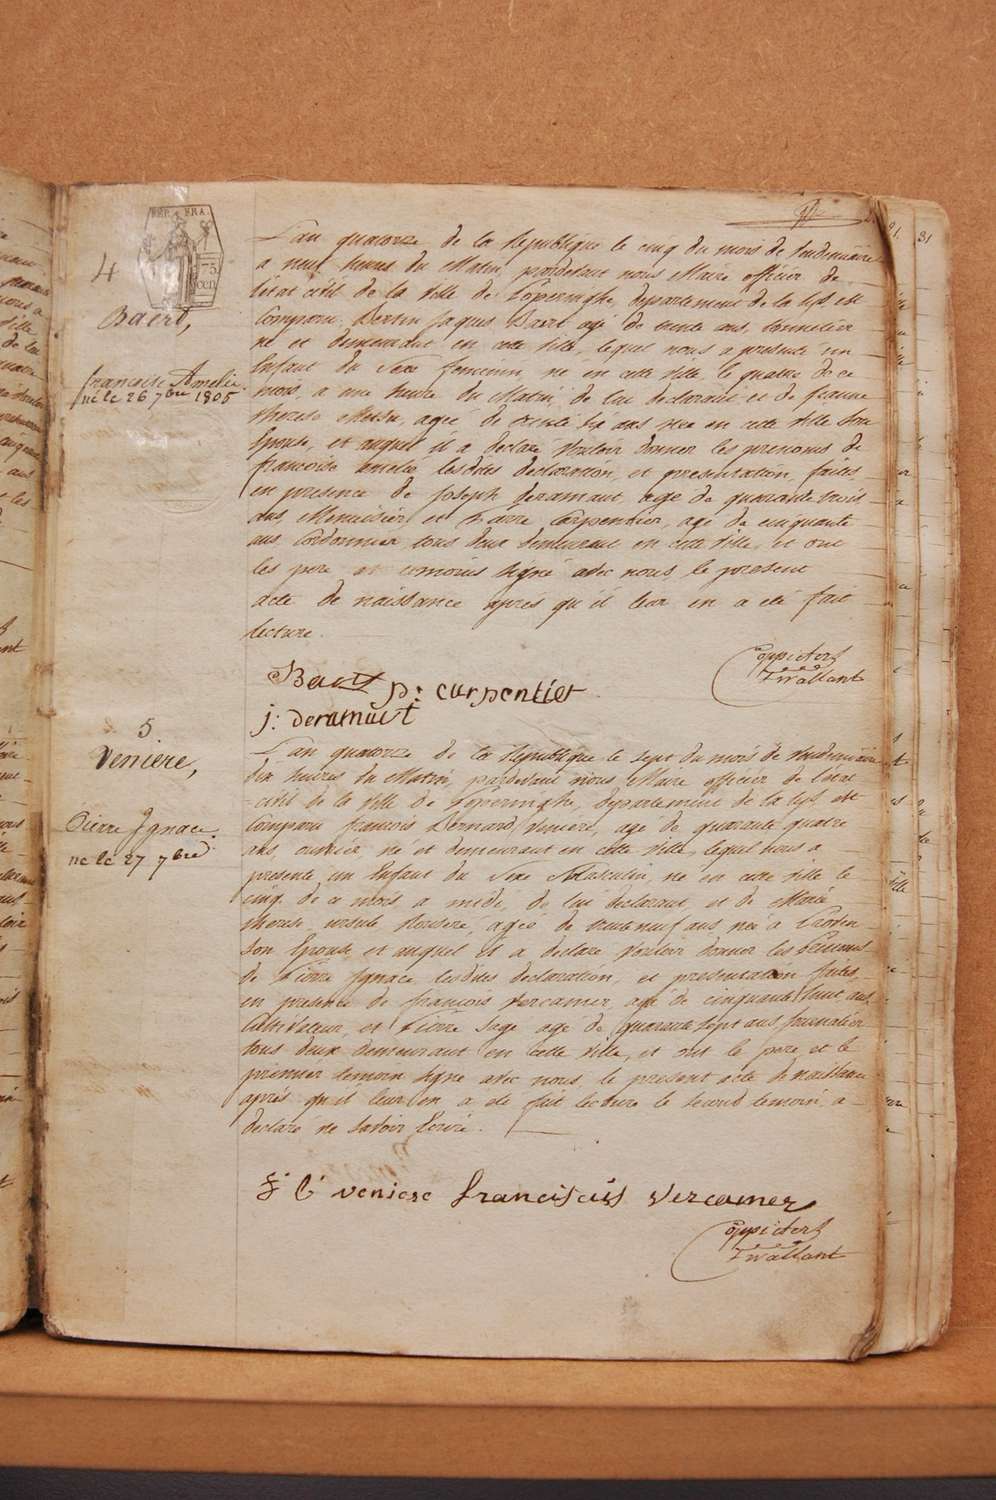 REP. FRA.
75
CEN
4
Baert,
francoise Amelie
né le 26 7bre 1805
L'an quatorze de la Republique le cinq du mois de Vendemiaire
a neuf heures du Matin, pardevant nous Maire officier de
l'état civil de la Ville de Poperinghe, departement de la Lys est
Comparu Bertin Jaques Baert agé de trente ans, tonnelier
né et demeurant en cette Ville, lequel nous a presenté un
Enfant du Sexe femenin, né en cette ville le quatre de ce
mois, a une heure du Matin, de lui declarant et de jeanne
therese agée de trente six ans née en cette ville Son
Epouse, et auquel il a declaré Vouloir donner les prenoms de
francoise amelie lesdites declaration, et presentation, faites,
en presence de joseph deramaut agé de quarante trois
ans, Menuisier et Pierre Carpentier, agé de cinquante
ans Cordonnier, tous deux demeurant en cette Ville, et ont
les pere et temoins signé avec nous le present
acte de naissance apres qu'il leur en a eté fait
lecture.
Baert p: carpentier
j: deramaut
Coppieters
T'wallant
5
Veniere,
Pierre Ignace
né le 27 7bre
L'an quatorze de la Republique le sept du mois de Vendemiaire
dix heures du Matin, pardevant nous Maire officier de l'etat
civil de la Ville de Poperinghe, departement de la Lys, est
Comparu françois Bernard Veniere, agé de quarante quatre
ans, ouvrier, né et demeurant en cette Ville, lequel nous a
presenté un Enfant du Sexe Masculin, né en cette Ville le
cinq de ce mois, a midi, de lui declarant, et de Marie
therese ursule agée de trente neuf ans née a
Son Epouse et auquel il a declaré Vouloir donner les Prenoms
de Pierre Ignace lesdites declaration, et presentation faites
en presence de françois Vercamer, agé de cinquante huit ans
Cultivateur, et Pierre Sage agé de quarante sept ans journalier
tous deux demeurant en cette Ville, et ont le pere et le
premier temoin signé avec nous le present acte de naissance
après qu'il leur en a eté fait lecture le second temoin a
declaré ne savoir Ecrire.
f b veniere franciscus Vercamer
Coppieters
T'wallant
31